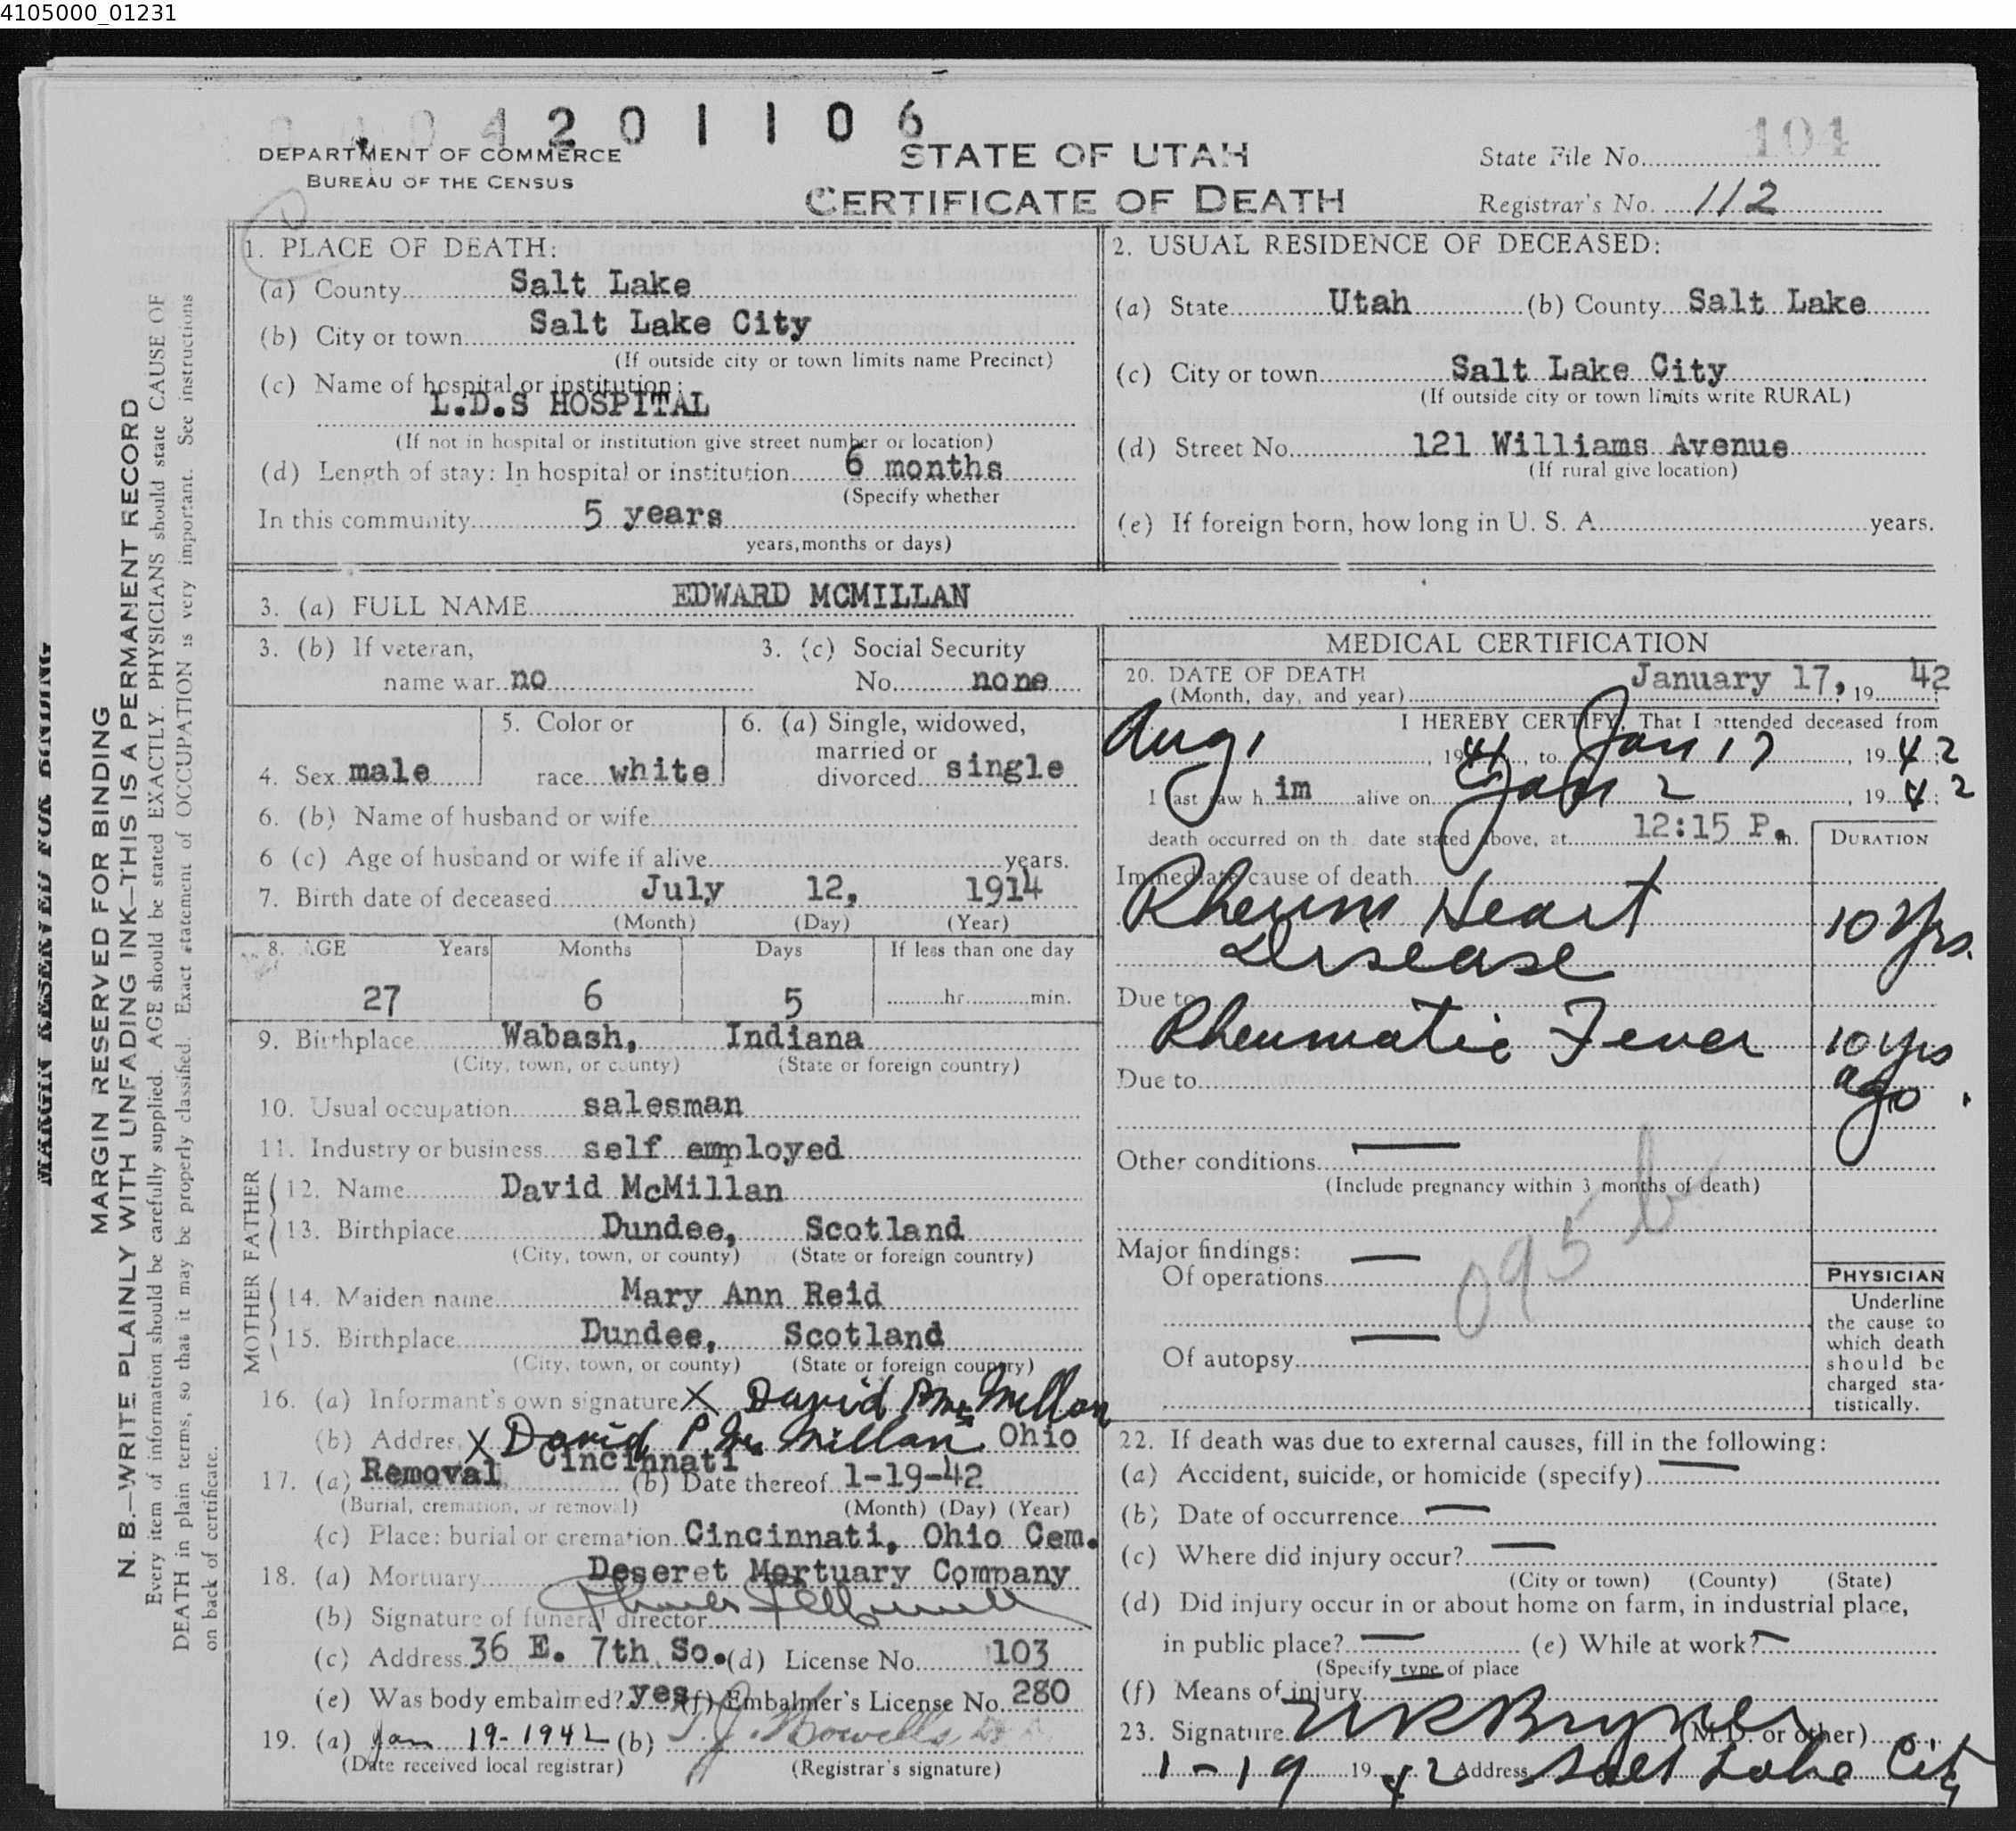 4105000_01231
4201106
DEPARTMENT OF COMMERCE
BUREAU OF THE CENSUS
STATE OF UTAH
CERTIFICATE OF DEATH
State File No. 104
Registrar's No. 112
MARGIN RESERVED FOR BINDING
MARGIN RESERVED FOR BINDING
N. B.—WRITE PLAINLY WITH UNFADING INK—THIS IS A PERMANENT RECORD
Every item of information should be carefully supplied. AGE should be stated EXACTLY. PHYSICIANS should state CAUSE OF
DEATH in plain terms, so that it may be properly classified. Exact statement of OCCUPATION is very important. See instructions
on back of certificate.
1. PLACE OF DEATH:
(a) County Salt Lake
(b) City or town Salt Lake City
(If outside city or town limits name Precinct)
(c) Name of hospital or institution:
L.D.S HOSPITAL
(If not in hospital or institution give street number or location)
(d) Length of stay: In hospital or institution 6 months
(Specify whether
In this community 5 years
years, months or days)
2. USUAL RESIDENCE OF DECEASED:
(a) State Utah (b) County Salt Lake
(c) City or town Salt Lake City
(If outside city or town limits write RURAL)
(d) Street No. 121 Williams Avenue
(If rural give location)
(e) If foreign born, how long in U. S. A. years.
3. (a) FULL NAME EDWARD MCMILLAN
3. (b) If veteran, 3. (c) Social Security
name war no No. none
4. Sex male
5. Color or
race white
6. (a) Single, widowed,
married or
divorced single
6. (b) Name of husband or wife
6 (c) Age of husband or wife if alive years.
7. Birth date of deceased July 12, 1914
(Month) (Day) (Year)
8. AGE Years Months Days If less than one day
27 6 5 hr. min.
9. Birthplace Wabash, Indiana
(City, town, or county) (State or foreign country)
10. Usual occupation salesman
11. Industry or business self employed
FATHER
12. Name David McMillan
13. Birthplace Dundee, Scotland
(City, town, or county) (State or foreign country)
MOTHER
14. Maiden name Mary Ann Reid
15. Birthplace Dundee, Scotland
(City, town, or county) (State or foreign country)
16. (a) Informant's own signature X David P McMillan
(b) Address X David P McMillan Ohio
Cincinnati
17. (a) Removal (b) Date thereof 1-19-42
(Burial, cremation, or removal) (Month) (Day) (Year)
(c) Place: burial or cremation Cincinnati, Ohio Cem.
18. (a) Mortuary Deseret Mortuary Company
(b) Signature of funeral director
(c) Address 36 E. 7th So. (d) License No. 103
(e) Was body embalmed? yes (f) Embalmer's License No. 280
19. (a) Jan 19-1942 (b) T. J. Howells
(Date received local registrar) (Registrar's signature)
MEDICAL CERTIFICATION
20. DATE OF DEATH
(Month, day, and year) January 17, 19 42
I HEREBY CERTIFY, That I attended deceased from
Aug 1, 1941, to Jan 17, 1942
I last saw him alive on Jan 2, 1942;
death occurred on the date stated above, at 12:15 P. m.
DURATION
Immediate cause of death
Rheum Heart
Disease
10 Yrs.
Due to
Rheumatic Fever 10 yrs
ago.
Due to
Other conditions —
(Include pregnancy within 3 months of death)
095b
Major findings:
Of operations —
Of autopsy —
PHYSICIAN
Underline
the cause to
which death
should be
charged sta-
tistically.
22. If death was due to external causes, fill in the following:
(a) Accident, suicide, or homicide (specify) —
(b) Date of occurrence —
(c) Where did injury occur? —
(City or town) (County) (State)
(d) Did injury occur in or about home on farm, in industrial place,
in public place? — (e) While at work? —
(Specify type of place
(f) Means of injury —
23. Signature (M.D. or other)
1-19 1942 Address Salt Lake City